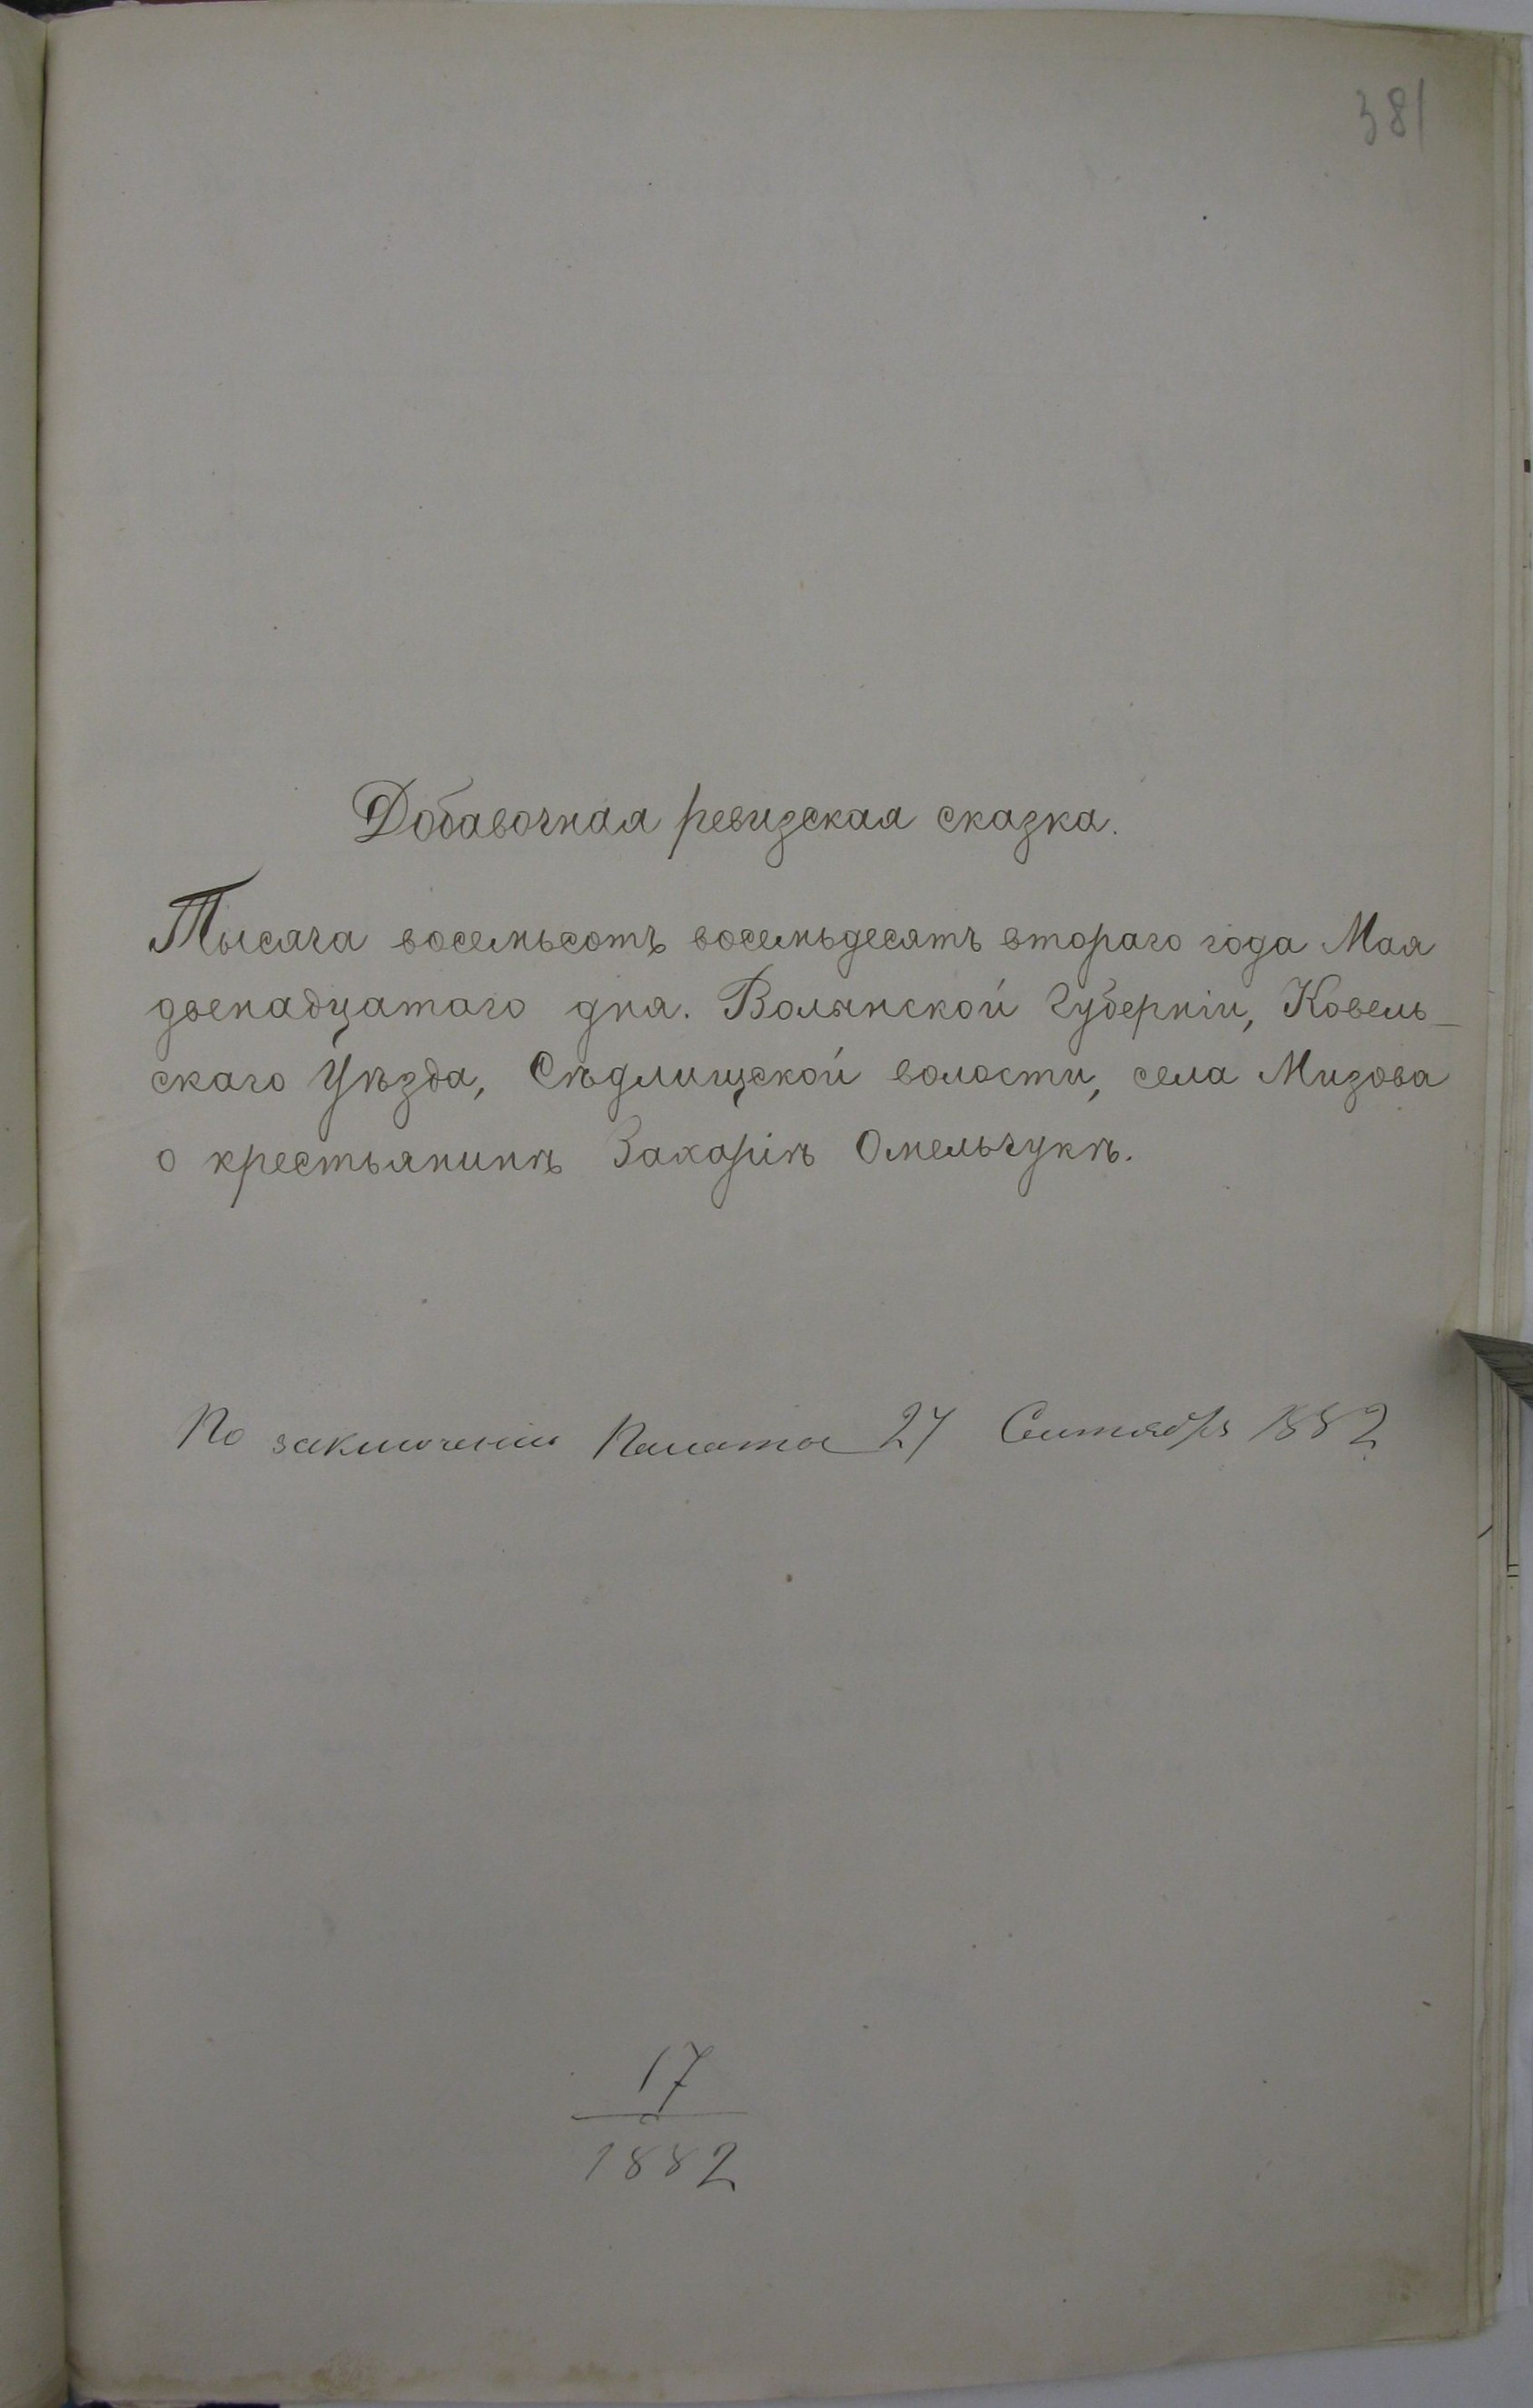 381
Добавочная ревизская сказка.
Тысяча восемьсотъ восемьдесятъ втораго года Мая
двенадцатаго дня. Волынской Губерніи, Ковель-
скаго Уѣзда, Сѣдлищской волости, села Мизова
о крестьянинѣ Захаріѣ Омельчукѣ.
По заключенію Палаты 27 Сентября 1882
17
1882